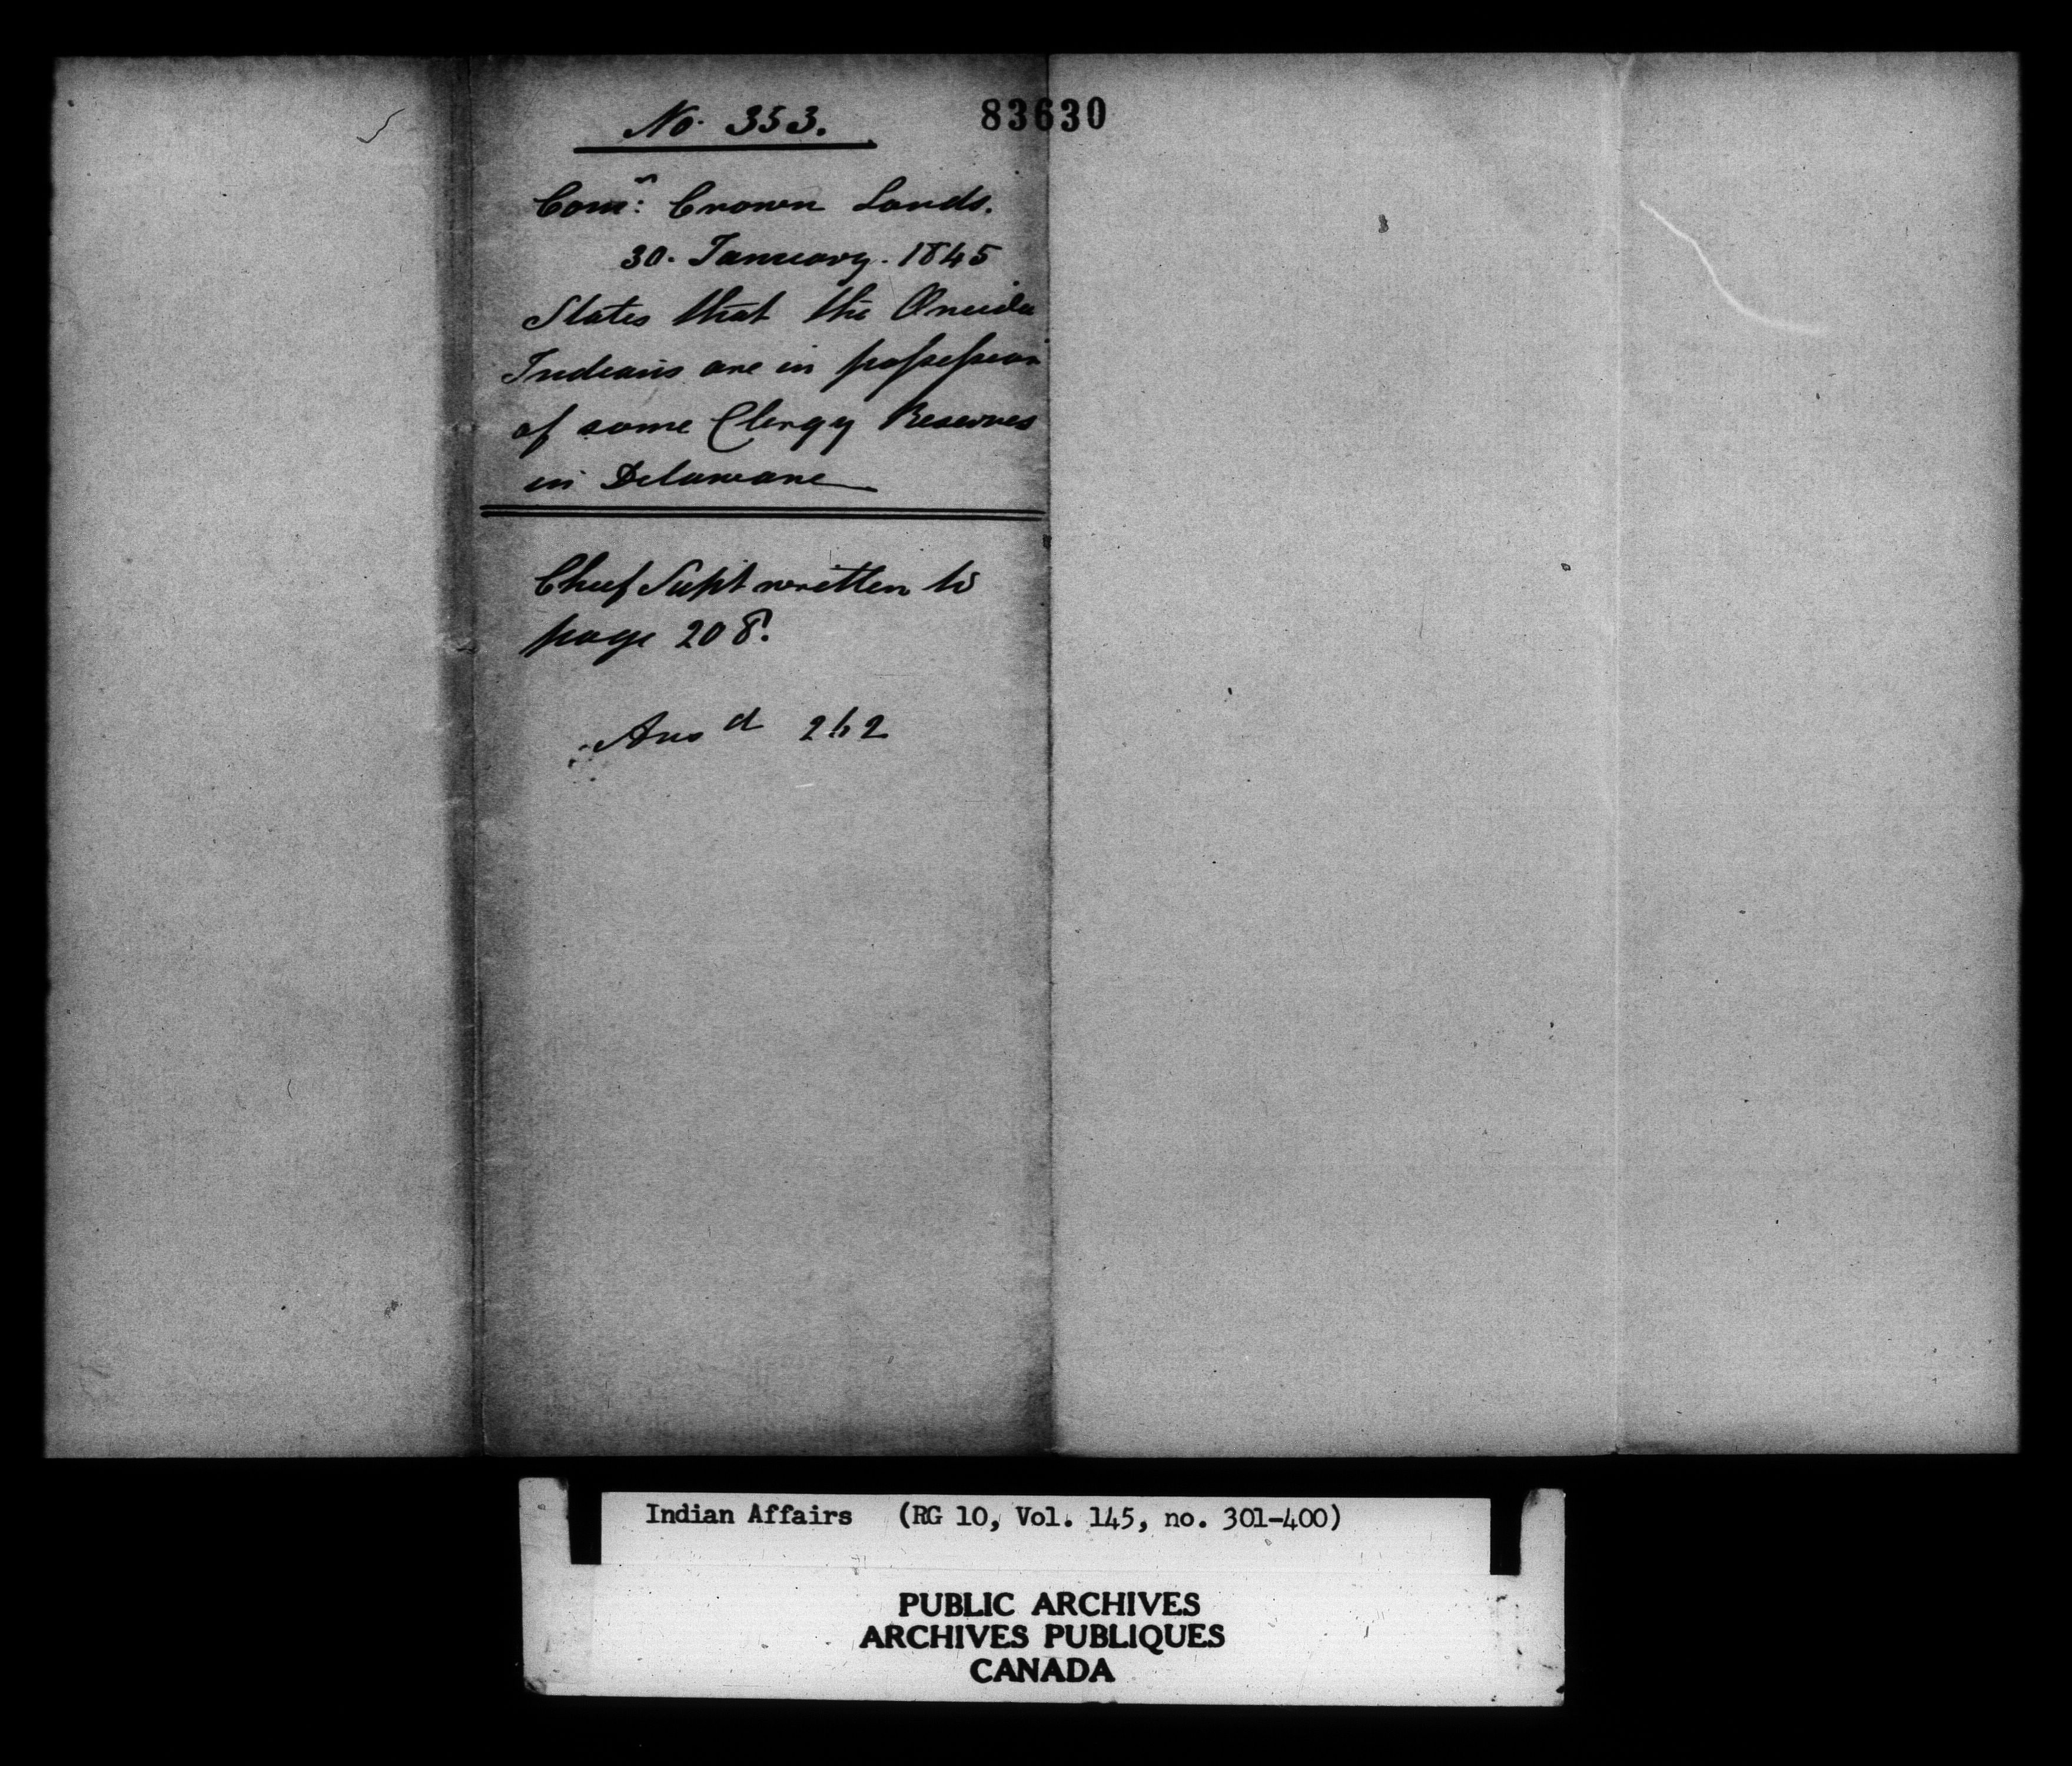 No. 353.
83630
Comr: Crown Lands.
30. January. 1845
States that the Oneida
Indians are in possession
of some Clergy Reserves
in Delaware
Chief Supt written to
page 208.
Ansd 262
Indian Affairs (RG 10, Vol. 145, no. 301-400)
PUBLIC ARCHIVES
ARCHIVES PUBLIQUES
CANADA